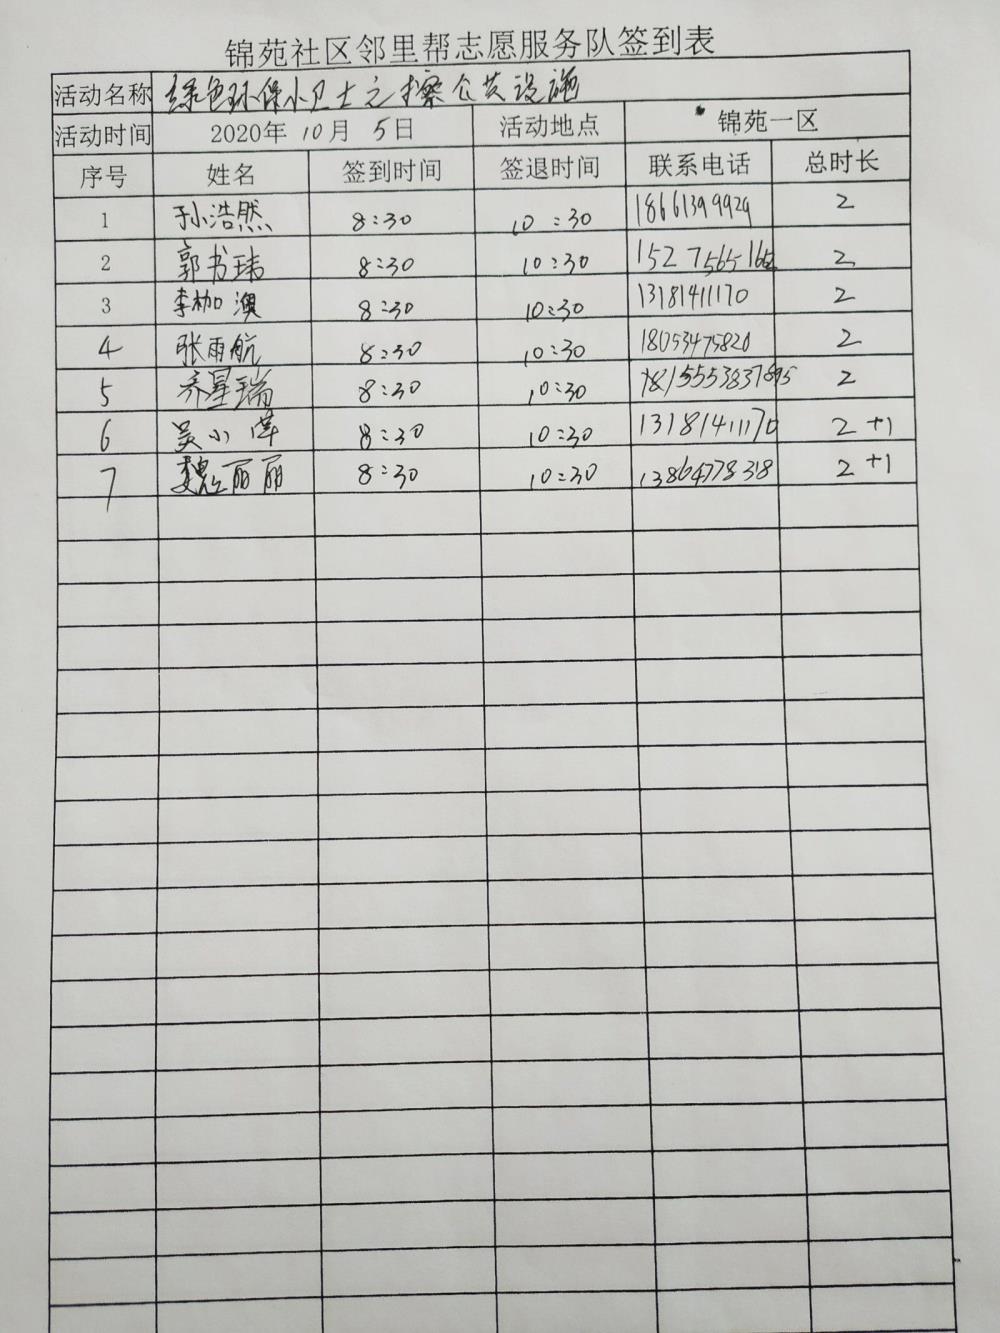 锦苑社区邻里帮志愿服务队签到表
活动名称 绿色环保小卫士之擦公共设施
活动时间 2020年 10月 5日 活动地点 锦苑一区
序号 姓名 签到时间 签退时间 联系电话 总时长
1 孙浩然 8:30 10:30 18661399929 2
2 郭书玮 8:30 10:30 2
3 李枷澳 8:30 10:30 13181411170 2
4 张雨航 8:30 10:30 18053475820 2
5 齐星瑞 8:30 10:30 2
6 吴小萍 8:30 10:30 13181411170 2+1
7 魏丽丽 8:30 10:30 13864778318 2+1